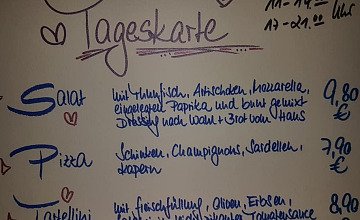 11-14:00
17-21:00 Uhr
Tageskarte
Salat
mit Thunfisch, Artischocken, Mozzarella,
eingelegten Paprika und bunt gemixt
Dressing nach Wahl + Brot vom Haus
9,80
€
Pizza
Schinken, Champignons, Sardellen,
Kapern
7,90
€
Tortellini
mit Fleischfüllung, Oliven, Erbsen,
Tomatensauce
8,90